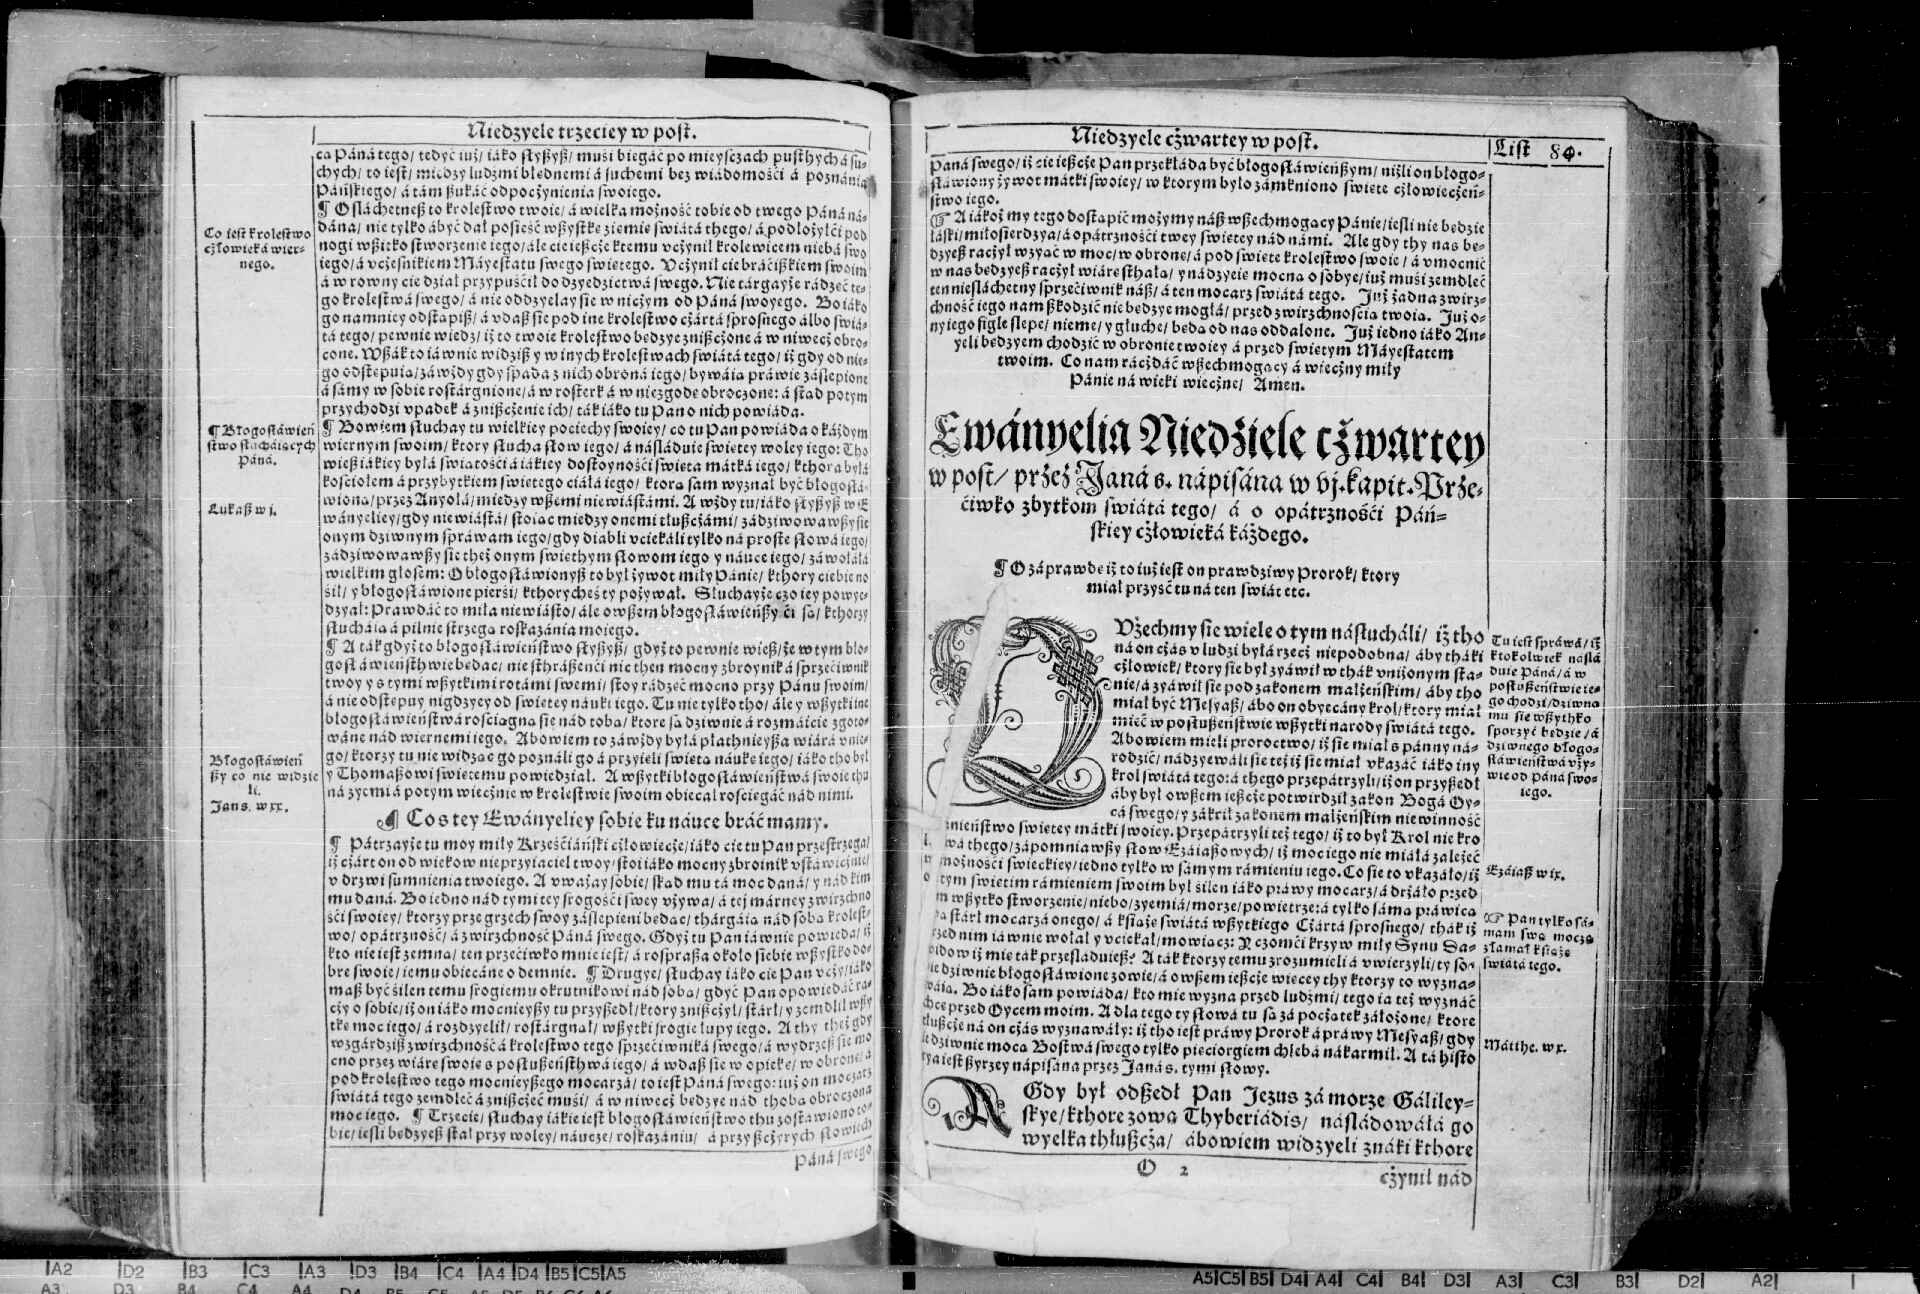 Niedzyele trzeciey w post.
ca Páná tego/ tedyć iuż/ iáko słyszysz/ muśi biegáć po mieysczách pusthych á su-
chych/ to iest/ miedzy ludźmi błednemi á suchemi bez wiádomośći á poznánia
Páńskiego/ á tám szukáć odpocżynienia swoiego.
¶ O sláchetnesz to krolestwo twoie/ á wielka możność tobie od twego Páná ná-
dána/ nie tylko ábyć dał posieść wszystkę ziemie świátá thego/ á podłożylći pod
nogi wszitko stworzenie iego/ ále cie ieszcże ktemu vcżynił krolewicem niebá swo
iego/ á vcżesnikiem Máyestatu swego swietego. Vcżynił cie bráćiszkiem swoim
á w rowny cie dział przypuścił do dzyedzictwá swego. Nie tárgayże rádzeć te-
go krolestwá swego/ á nie oddzyelay sie w nicżym od Páná swoyego. Bo iáko
go namniey odstąpisz/ á vdasz sie pod ine krolestwo cżártá sprosnego álbo świá-
tá tego/ pewnie wiedz/ iż to twoie krolestwo bedzye zniszcżone á w niwecż obro-
cone. Wszák to iáwnie widzisz y w inych krolestwach świátá tego/ iż gdy od nie-
go odstepuia/ záwżdy gdy spáda z nich obroná iego/ bywáia práwie záslepione
á sámy w sobie rostárgnione/ á w rosterk á w niezgode obroczone: á stad potym
przychodzi vpadek á zniszcżenie ich/ ták iáko tu Pan o nich powiáda.
¶ Bowiem słuchay tu wielkiey poćiechy swoiey/ co tu Pan powiáda o káżdym
wiernym swoim/ ktory słucha słow iego/ á násláduie swietey woley iego: Tho
wiesz iákiey była swiátośći á iákiey dostoynośći swieta mátká iego/ kthora była
kośćiołem á przybytkiem swietego ciáłá iego/ ktora sam wyznał być błogosłá-
wiona/ przez Anyołá/ miedzy wszemi niewiástámi. A wżdy tu/ iáko słyszysz w E
wányeliey/ gdy niewiástá/ stoiac miedzy onemi tłuszcżámi/ zádziwowawszy sie
onym dziwnym spráwam iego/ gdy diabli vciekáli tylko ná proste słowá iego/
zádziwowawszy sie theż onym swiethym słowom iego y náuce iego/ záwołáłá
wielkim głosem: O błogosłáwionysz to był żywot miły Pánie/ kthory ciebie no
śił/ y błogosłáwione pierśi/ kthorycheś ty pożywał. Słuchayże czo iey powye-
dzyał: Prawdáć to miła niewiásto/ ále owszem błogosłáwieńszy ći sa/ kthorzy
słucháia á pilnie strzega roskazánia moiego.
¶ A ták gdyż to błogosłáwieństwo słyszysz/ gdyż to pewnie wiesz/ że w tym bło-
gosłáwieństhwie bedac/ nie sthrászenći nic then mocny zbroynik á sprzećiwnik
twoy y s tymi wszytkimi rotámi swemi/ stoy rádzeć mocno przy Pánu swoim/
á nie odstepuy nigdzyey od swietey náuki iego. Tu nie tylko tho/ ále y wszytki ine
błogosłáwieństwá rosciągna sie nád toba/ ktore sa dziwnie á rozmáicie zgoto-
wáne nád wiernemi iego. Abowiem to záwżdy byłá płathnieysza wiárá v nie-
go/ ktorzy tu nie widzac go poználi go á przyieli swieta náuke iego/ iáko tho był
y Thomászowi świetemu powiedział. A wszytki błogosłáwieństwá swoie thu
ná zyemi á potym wiecżnie w krolestwie swoim obiecał rosciegáć nád nimi.
¶ Co s tey Ewányeliey sobie ku náuce bráć mamy.
¶ Pátrzayże tu moy miły Krześćiáński cżłowiecże/ iáko cie tu Pan przestrzega/
iż cżárt on od wiekow nieprzyiaciel twoy/ stoi iáko mocny zbroinik vstáwicżnie/
v drzwi sumnienia twoiego. A vważay sobie/ skad mu tá moc dána/ y nád kim
mu dána. Bo iedno nád tymi tey srogośći swey vżywa/ á tej márney zwirzchno
śći swoiey/ ktorzy prze grzech swoy záslepieni bedac/ thárgáia nád soba krolest-
wo/ opátrzność/ á zwirzchność Páná swego. Gdyż tu Pan iáwnie powieda/ iż
kto nie iest zemna/ ten przećiwko mnie iest/ á rosprasza około siebie wszystko do-
bre swoie/ iemu obiecáne odemnie. ¶ Drugye/ słuchay iáko cie Pan vcży/ iáko
masz być śilen temu srogiemu okrutnikowi nád soba/ gdyć Pan opowiedáć rá-
cży o sobie/ iż on iáko mocnieyszy tu przyszedł/ ktory zniszcżył/ stárł/ y zemdlił wszy
tke moc iego/ á rozdzyelił/ rostárgnał/ wszytki srogie łupy iego. A thy theż gdy
wzgárdzisz zwirzchność á krolestwo tego sprzećiwniká swego/ á wydrzesz sie mo
cno przez wiáre swoie s posłuszeństhwá iego/ á wdasz sie w opieke/ w obrone/ á
pod krolestwo tego mocnieyszego mocarzá/ to iest Páná swego: iuż on mocarz
świátá tego zemdleć á zniszcżeć muśi/ á w niwecż bedzye nád thoba obroczona
moc iego. ¶ Trzecie/ słuchay iákie iest błogosłáwieństwo thu zostáwiono to-
bie/ iesli bedzyesz stał przy woley/ náuce/ roskazániu/ á przy szcżyrych słowiech
Páná swego
Co iest krolestwo
cżłowieká wier-
nego.
¶ Błogosłáwień
stwo słucháiących
Páná.
Lukasz w j.
Błogosłáwień
szy co nie widzie
li.
Jan s. w xx.
Niedzyele cżwartey w post.
List 84.
Páná swego/ iż cie ieszcże Pan przekłáda być błogosłáwieńszym/ niżli on błogo-
słáwiony żywot mátki swoiey/ w ktorym było zámkniono swiete cżłowiecżeń-
stwo iego.
☞ A iákoż my tego dostápić możymy nász wszechmogacy Pánie/ iesli nie bedzie
łáski/ miłosierdzya/ á opátrznośći twey swietey nád námi. Ale gdy thy nas be-
dzyesz racżył wzyáć w moc/ w obrone/ á pod swiete krolestwo swoie/ á vmocnić
w nas bedzyesz racżył wiáre sthała/ y nádzyeie mocna o sobye/ iuż muśi zemdleć
ten nieslachetny sprzećiwnik nász/ á ten mocarz świátá tego. Już żadna zwirz-
chność iego nam szkodzić nie bedzye mogłá/ przed zwirzchnoscia twoia. Już o-
ny iego figle slepe/ nieme/ y głuche/ beda od nas oddalone. Już iedno iáko An-
yeli bedzyem chodzić w obronie twoiey á przed swietym Máyestatem
twoim. Co nam racż dáć wszechmogacy á wiecżny miły
Pánie ná wieki wiecżne/ Amen.
Ewányelia Niedźiele cżwartey
w post/ przez Janá s. nápisána w vj. kapit. Prze-
ćiwko zbytkom świátá tego/ á o opátrznośći Páń-
skiey cżłowieká káżdego.
¶ O záprawde iż to iuż iest on prawdziwy Prorok/ ktory
miał przyść tu ná ten świát etc.
Vżechmy sie wiele o tym násłucháli/ iż tho
ná on cżás v ludzi byłá rzecż niepodobna/ áby tháki
cżłowiek/ ktory sie był zyáwił w thák vniżonym stá-
nie/ á zyáwił sie pod zakonem małżeńskim/ áby tho
miał być Mesyasz/ ábo on obyecány krol/ ktory miał
mieć w posłuszeństwie wszytki narody świátá tego.
Abowiem mieli proroctwo/ iż sie miał s pánny ná-
rodzić/ nádzyewáli sie też iż sie miał vkazáć iáko iny
krol świátá tego: á thego przepátrzyli/ iż on przyszedł
áby był owszem ieszcże potwirdził zakon Bogá Oy-
cá swego/ y zákrił zakonem małżeńskim niewinność
nieństwo swietey mátki swoiey. Przepátrzyli też tego/ iż to był Krol nie kro
wá thego/ zápomniawszy słow Ezáiaszowych/ iż moc iego nie miáłá záleżeć
możnośći swieckiey/ iedno tylko w sámym rámieniu iego. Co sie to vkazáło/ iż
tym swietim rámieniem swoim był śilen iáko práwy mocarz/ á drżáło przed
m wszytko stworzenie/ niebo/ zyemiá/ morze/ powietrze: á tylko sámá práwicá
stárł mocarzá onego/ á ksiaże świátá wszytkiego Cżártá sprosnego/ thák iż
rzed nim iáwnie wołał y vciekał/ mowiacz: Y czomći krzyw miły Synu Da-
widow iż mie ták przesláduiesz? A ták ktorzy temu zrozumieli á vwierzyli/ ty so-
bie dziwnie błogosłáwione zowie/ á owszem ieszcże wiecey thy ktorzy to wyzna-
wáia. Bo iáko sam powiáda/ kto mie wyzna przed ludźmi/ tego ia też wyznáć
chce przed Oycem moim. A dla tego ty słowá tu sa zá pocżatek záłożone/ ktore
tłuszcże ná on cżás wyznawáły: iż tho iest práwy Prorok á práwy Mesyasz/ gdy
ie dziwnie moca Bostwá swego tylko piećiorgiem chlebá nákarmił. A tá histo
rya iest szyrzey nápisána przez Janá s. tymi słowy.
A Gdy był odszedł Pan Jezus zá morze Gáliley-
skye/ kthore zowa Thyberiádis/ násládowáłá go
wyelka thłuszcża/ ábowiem widzyeli znáki kthore
O 2
cżynił nád
Tu iest spráwá/ iż
ktokolwiek náslá
duie Páná/ á w
posłuszeństwie ie-
go chodzi/ dziwna
mu sie wszythko
sporzyć bedzie/ á
dziwnego błogo-
słáwieństwá vży-
wie od Páná swo-
iego.
Ezáiasz w ix.
☞ Pan tylko sá-
mam swą mocza
złamał książe
świátá tego.
Mátthe. w x.